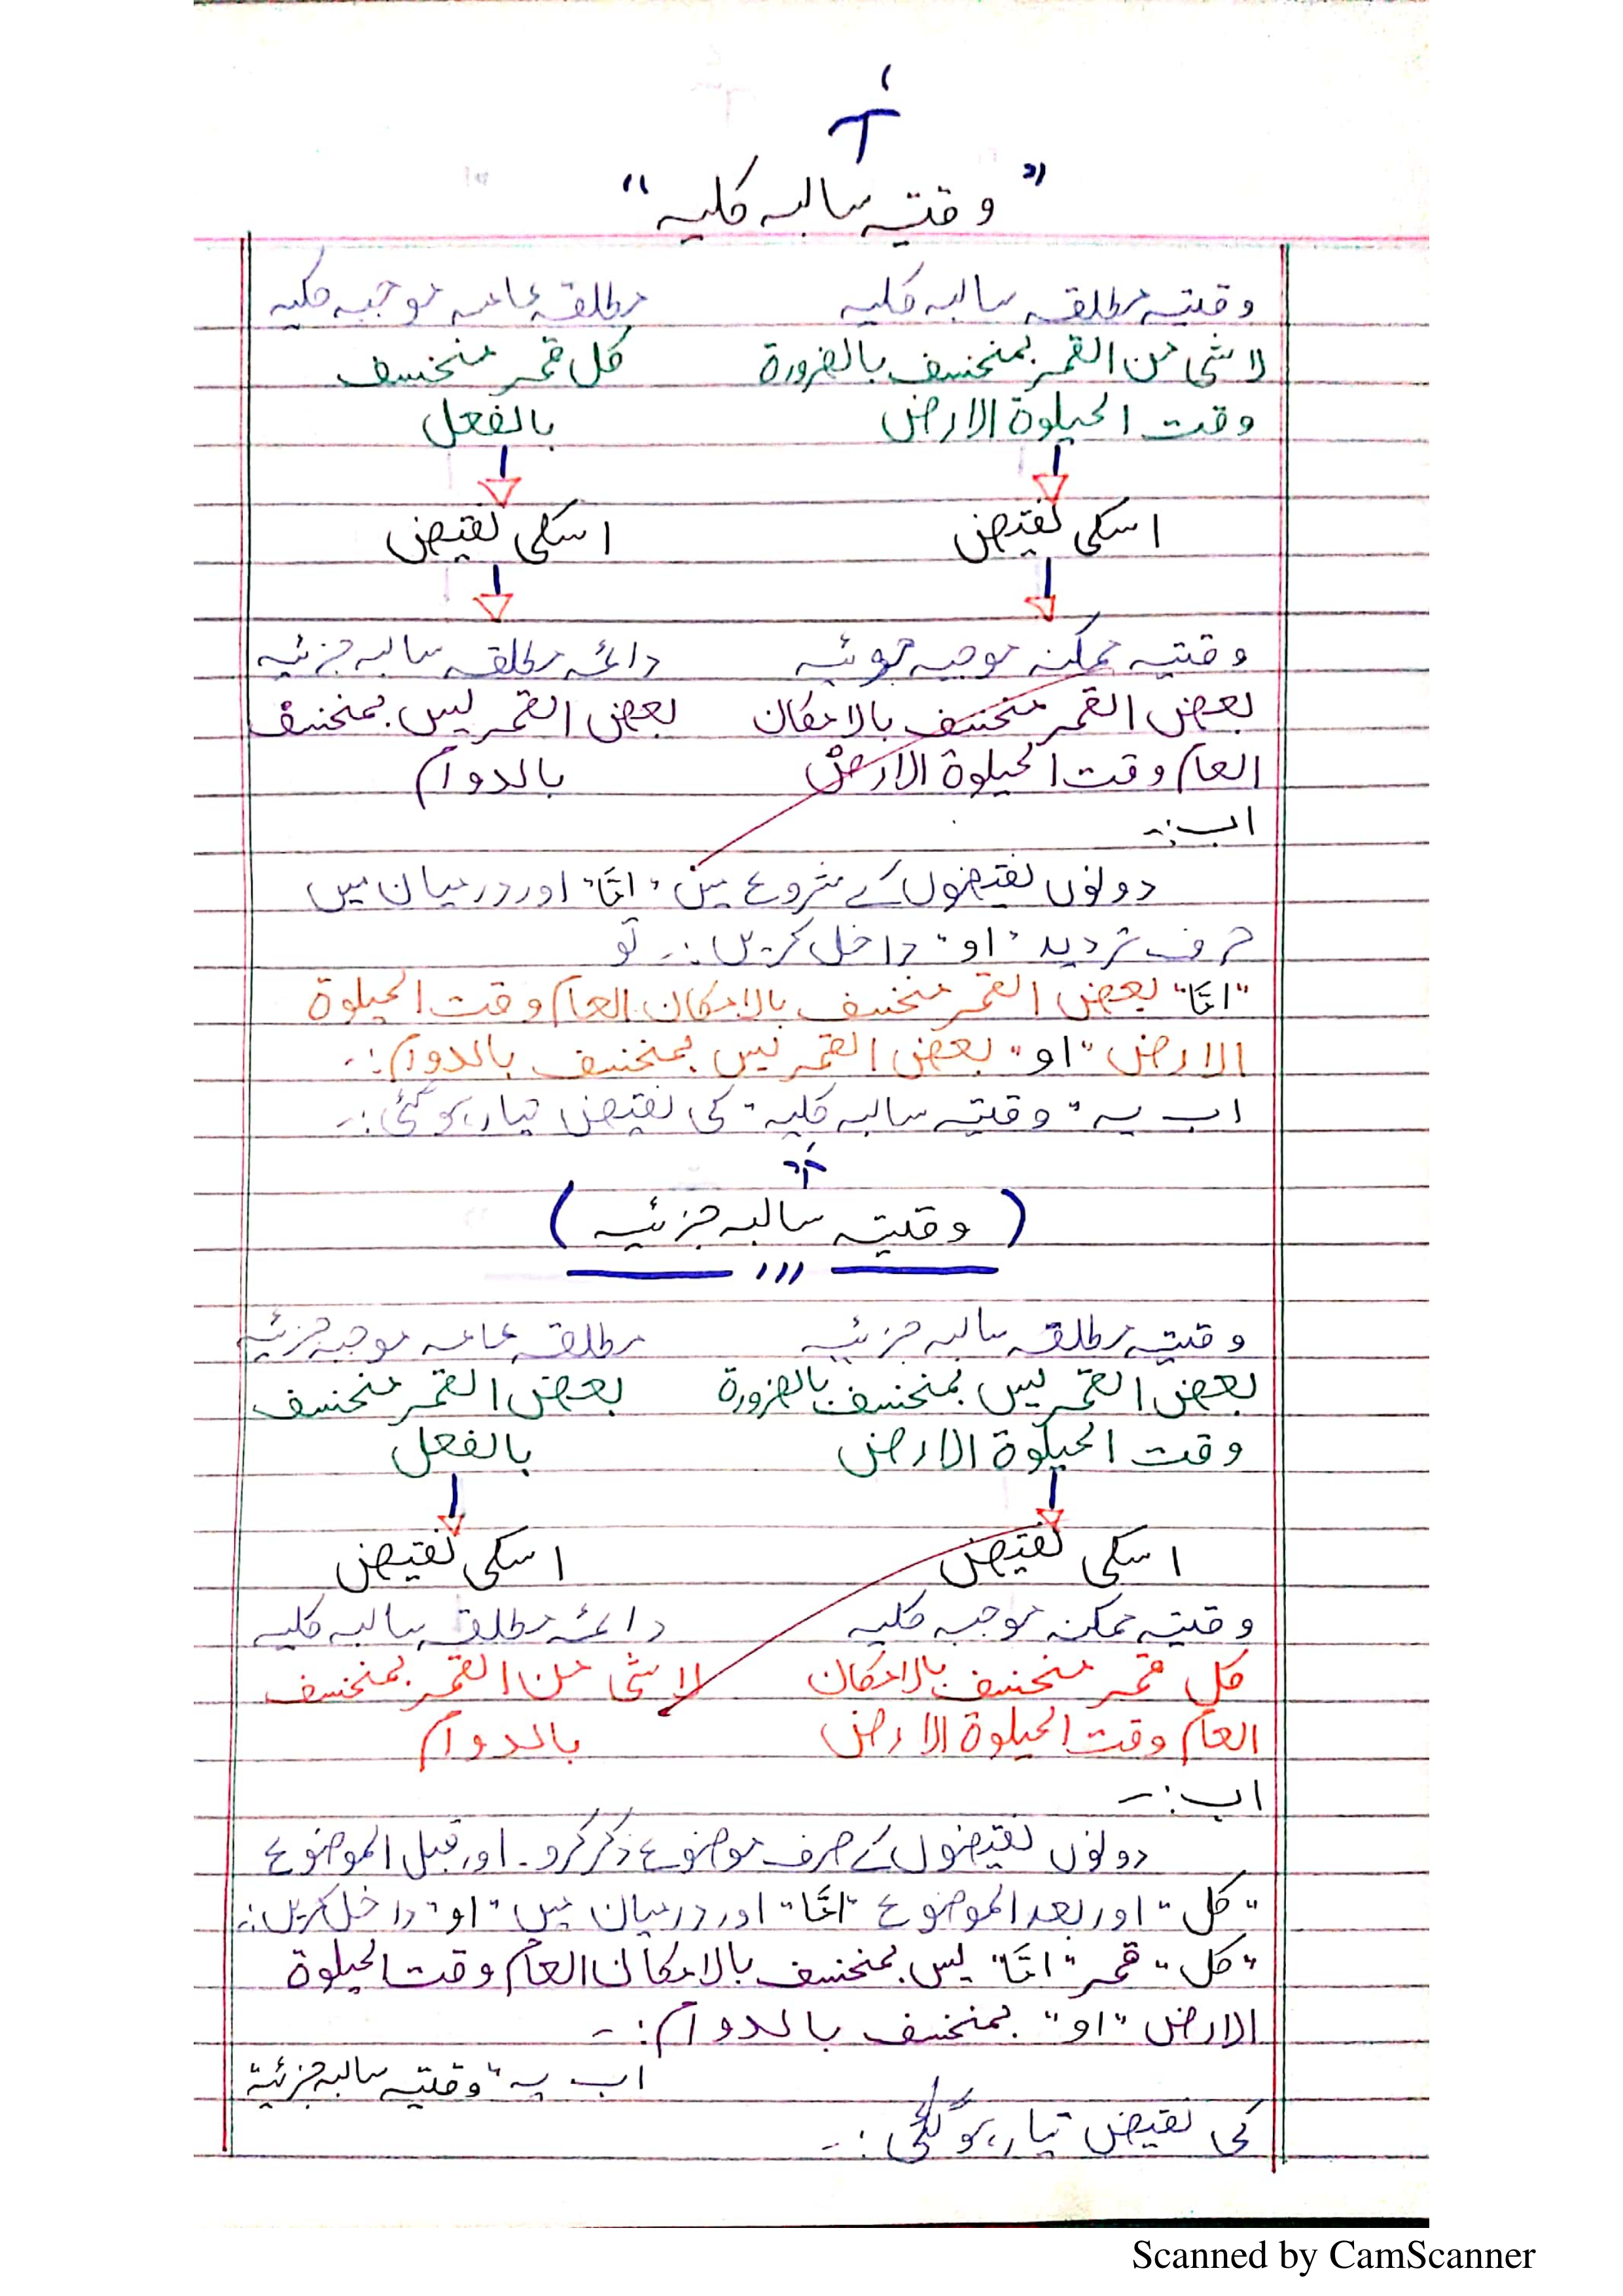 "وقتیہ سالبہ کلیہ"
وقتیہ مطلقہ سالبہ کلیہ    مطلقہ عامہ موجبہ کلیہ
لا شئ من القمر بمنخسف بالضرورة    کل قمر منخسف
وقت الحیلوة الارض    بالفعل
اسکی نقیض    اسکی نقیض
وقتیہ ممکنہ موجبہ جزئیہ    دائمہ مطلقہ سالبہ جزئیہ
بعض القمر منخسف بالامکان    بعض القمر لیس بمنخسف
العام وقت الحیلوة الارض    بالدوام
اب:۔
دونوں نقیضوں کے شروع میں "امّا" اور درمیان میں
حرف تردید "او" داخل کریں:۔ تو
"امّا" بعض القمر منخسف بالامکان العام وقت الحیلوة
الارض "او" بعض القمر لیس بمنخسف بالدوام:۔
اب یہ "وقتیہ سالبہ کلیہ" کی نقیض تیار ہو گئی:۔
(وقتیہ سالبہ جزئیہ)
وقتیہ مطلقہ سالبہ جزئیہ    مطلقہ عامہ موجبہ جزئیہ
بعض القمر لیس بمنخسف بالضرورة    بعض القمر منخسف
وقت الحیلوة الارض    بالفعل
اسکی نقیض    اسکی نقیض
وقتیہ ممکنہ موجبہ کلیہ    دائمہ مطلقہ سالبہ کلیہ
کل قمر منخسف بالامکان    لا شئ من القمر بمنخسف
العام وقت الحیلوة الارض    بالدوام
اب:۔
دونوں نقیضوں کے صرف موضوع ذکر کرو۔ اور قبل الموضوع
"کل" اور بعد الموضوع "امّا" اور درمیان میں "او" داخل کریں:۔
"کل" قمر "امّا" لیس بمنخسف بالامکان العام وقت الحیلوة
الارض "او" بمنخسف بالدوام:۔
اب یہ "وقتیہ سالبہ جزئیہ"
کی نقیض تیار ہو گئی:۔
Scanned by CamScanner